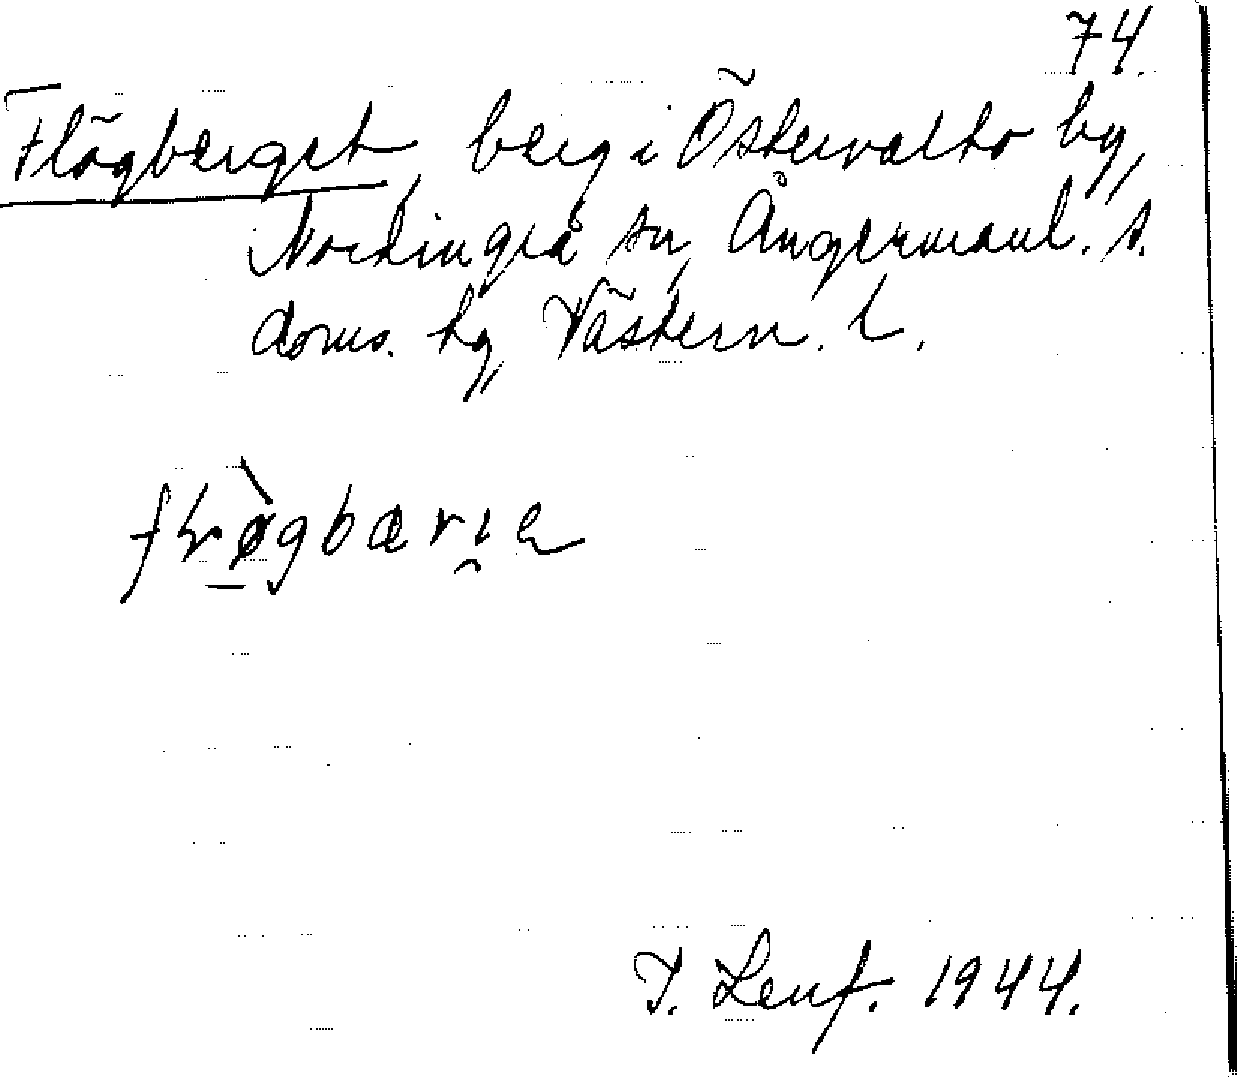 74.
Flögberget, berg i Östervalto by,
Nordingrå sn, Ångermanl. s.
doms. hg, Västern. l.
fløgbærıe
T. Lenf. 1944.